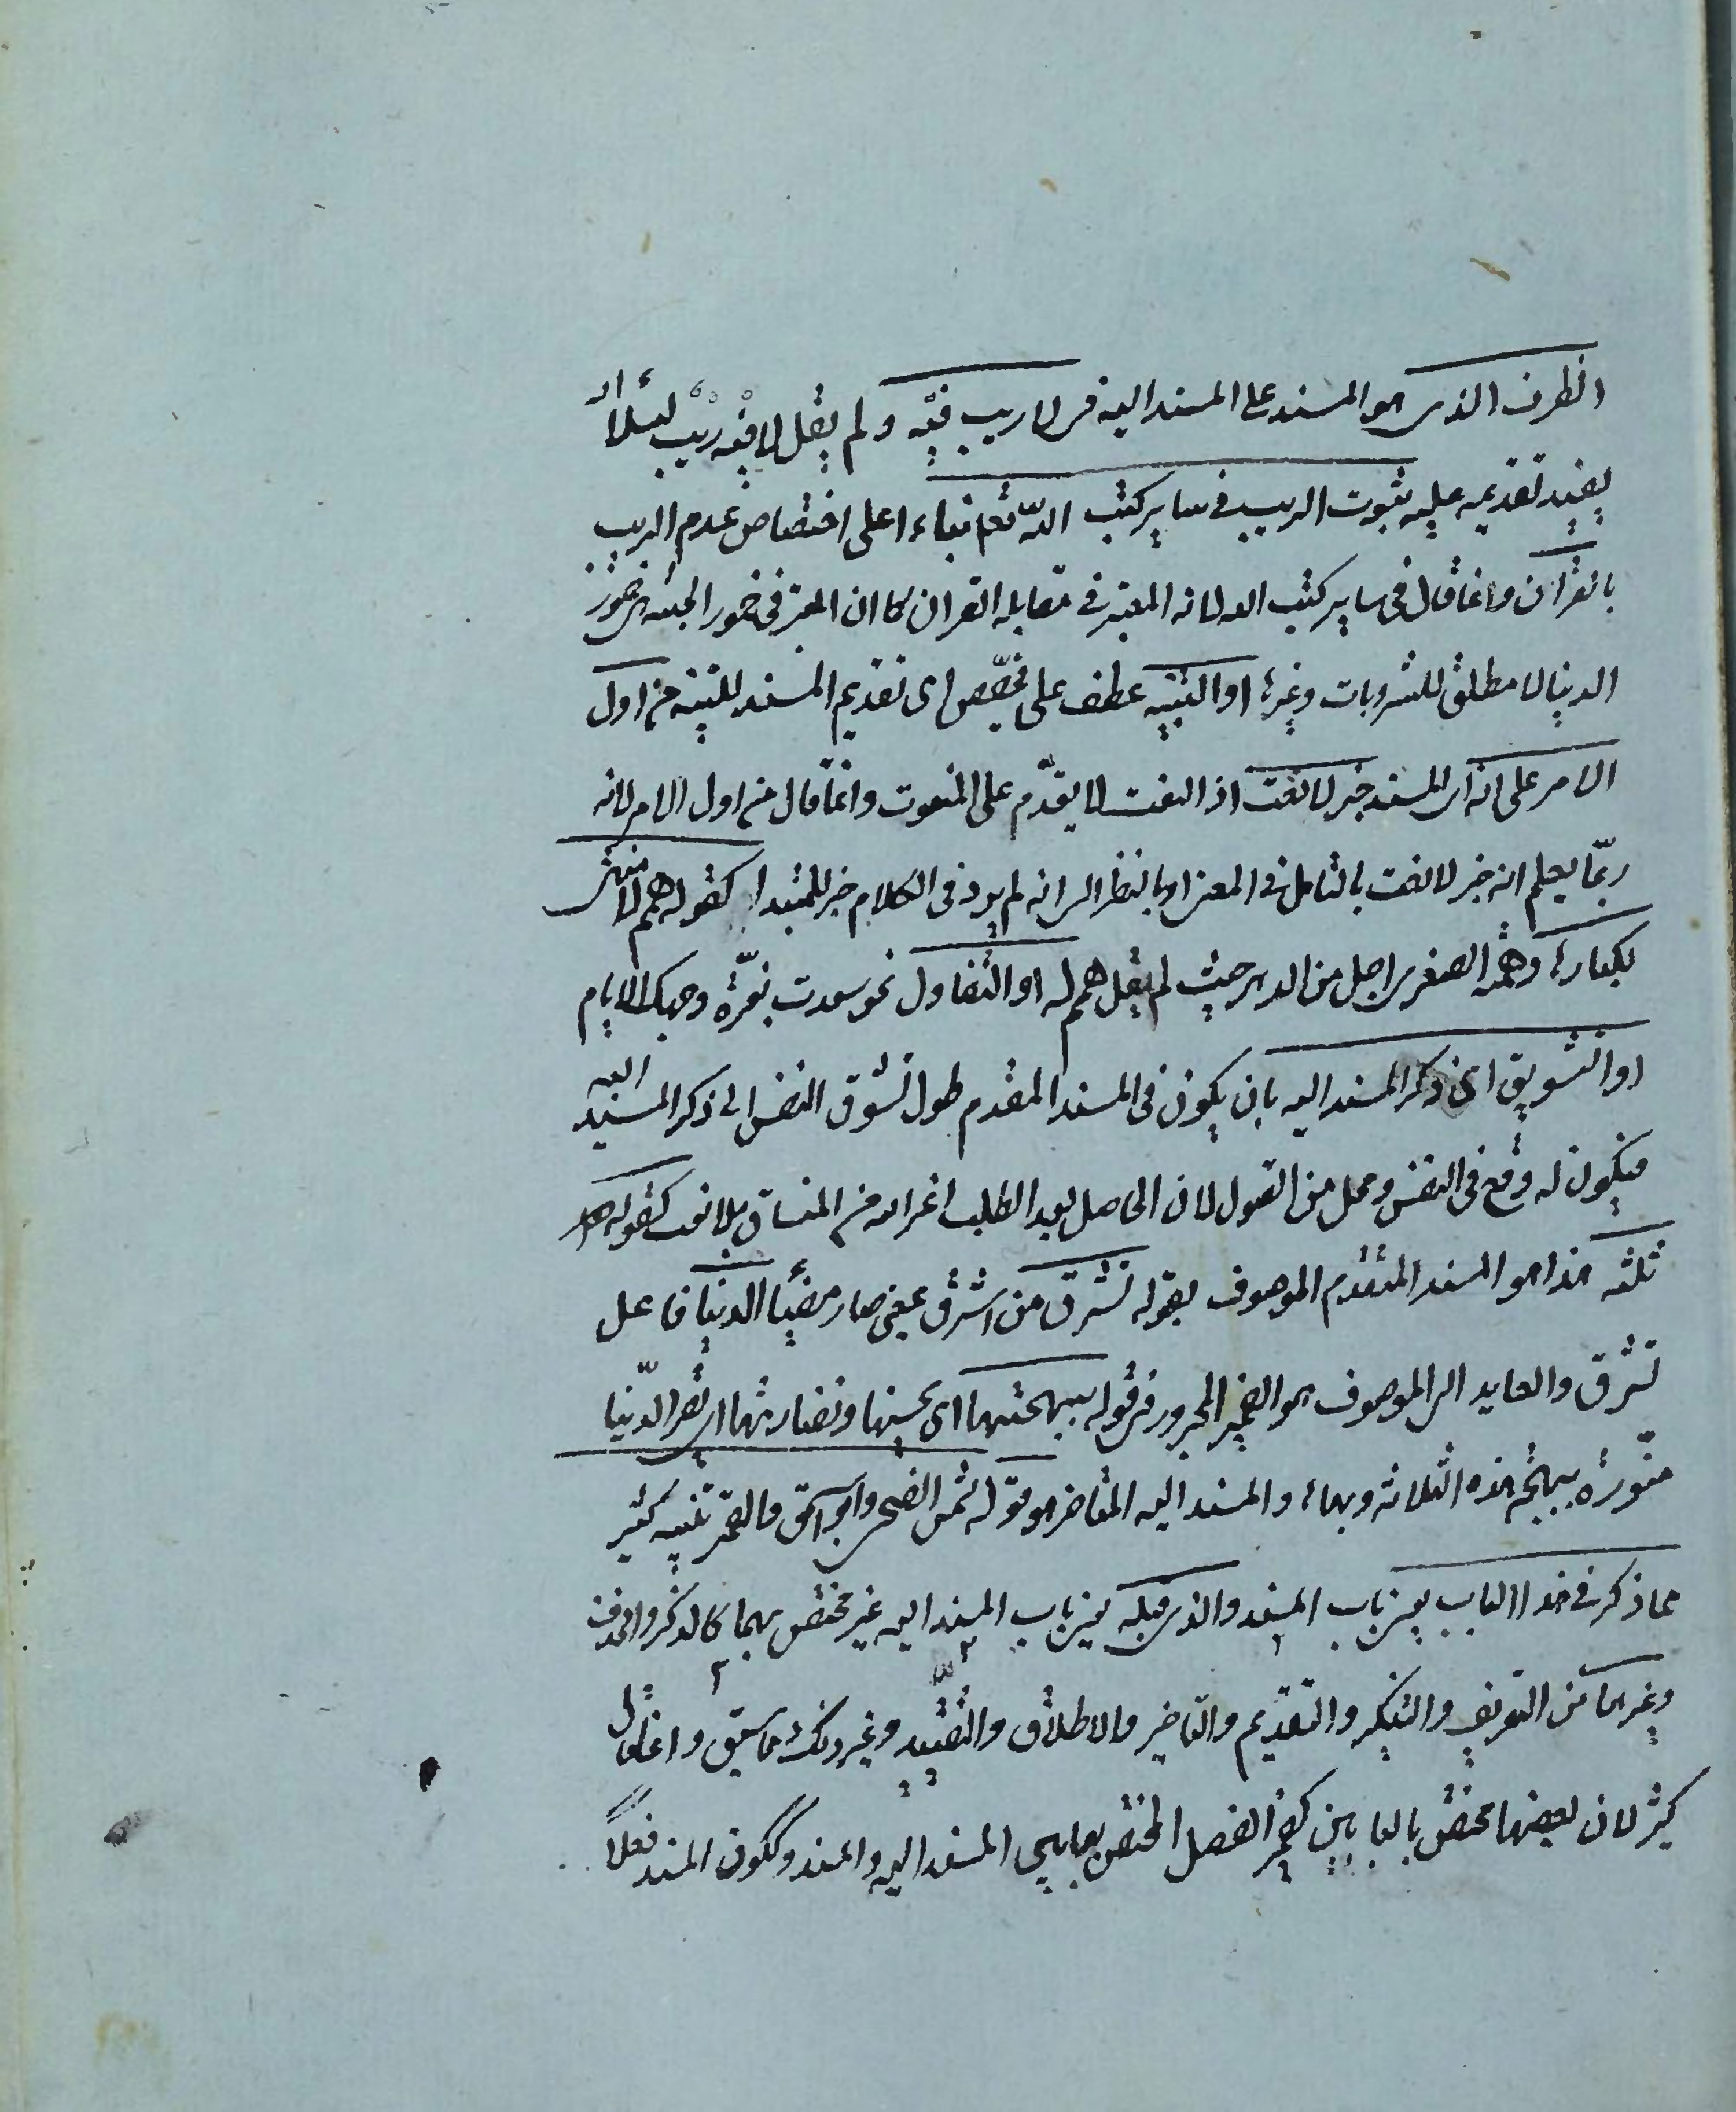 الظرف الذى هو المسند على المسند اليه فى لا ريب فيه ولم يقل لا فيه ريب لئلا
يفيد تقديمه عليه ثبوت الريب فى ساير كتب اللّه تعم بناء على اختصاص عدم الريب
بالقران وانما قال فى ساير كتب الله لانه المعتبر فى مقابله القران كما ان المعتبر فى خمور الجنه هى خمور
الدنيا لا مطلق المشروبات وغيرها او التنبيه عطف على تخصيص اى تقديم المسند للتنبيه من اول
الامر على انه اى المسند خبر لا نعت اذ النعت لا يقدّم على المنعوت وانما قال من اول الامر لانه
ربّما يعلم انه خبر لا نعت بالتامل فى المعنى او بالنظر الى انه لم يرد فى الكلام خبر للمبتدا كقوله له همم لا منتهى
لكبارها وهمته الصغرى اجل من الدهر حيث لم يقل همم له او التفاول نحو سعدت بغرّة وجهك الايام
او التشويق الى ذكر المسند اليه بان يكون فى المسند المقدم طول تشوق النفس الى ذكر المسند اليه
فيكون له وقع فى النفس ومحل من القبول لان الحاصل بعد الطلب اعز من المنساق بلا تعب كقوله
ثلثه هذا هو المسند المتقدم الموصوف بقوله تشرق من اشرق بمعنى صار مضيئا الدنيا فاعل
تشرق والعايد الى الموصوف هو الضمير المجرور فى قوله ببهجتها اى بحسنها ونضارتها اى تصير الدّنيا
منوّرة ببهجة هذه الثلاثة وبهاءها والمسند اليه المتاخر هو قوله شمس الضحى وابو اسحق والقمر تنبيه كثير
مما ذكر فى هذا الباب يعنى باب المسند والذى قبله يعنى باب المسند اليه غير مختص بهما كالذكر والحذف
وغيرهما من التعريف والتنكير والتقديم والتاخير والاطلاق والتقييد وغير ذلك مما سبق وانما قال
كثير لان بعضها مختص بالبابين كضمير الفصل المختص بما بين المسند اليه والمسند وككون المسند فعلاً